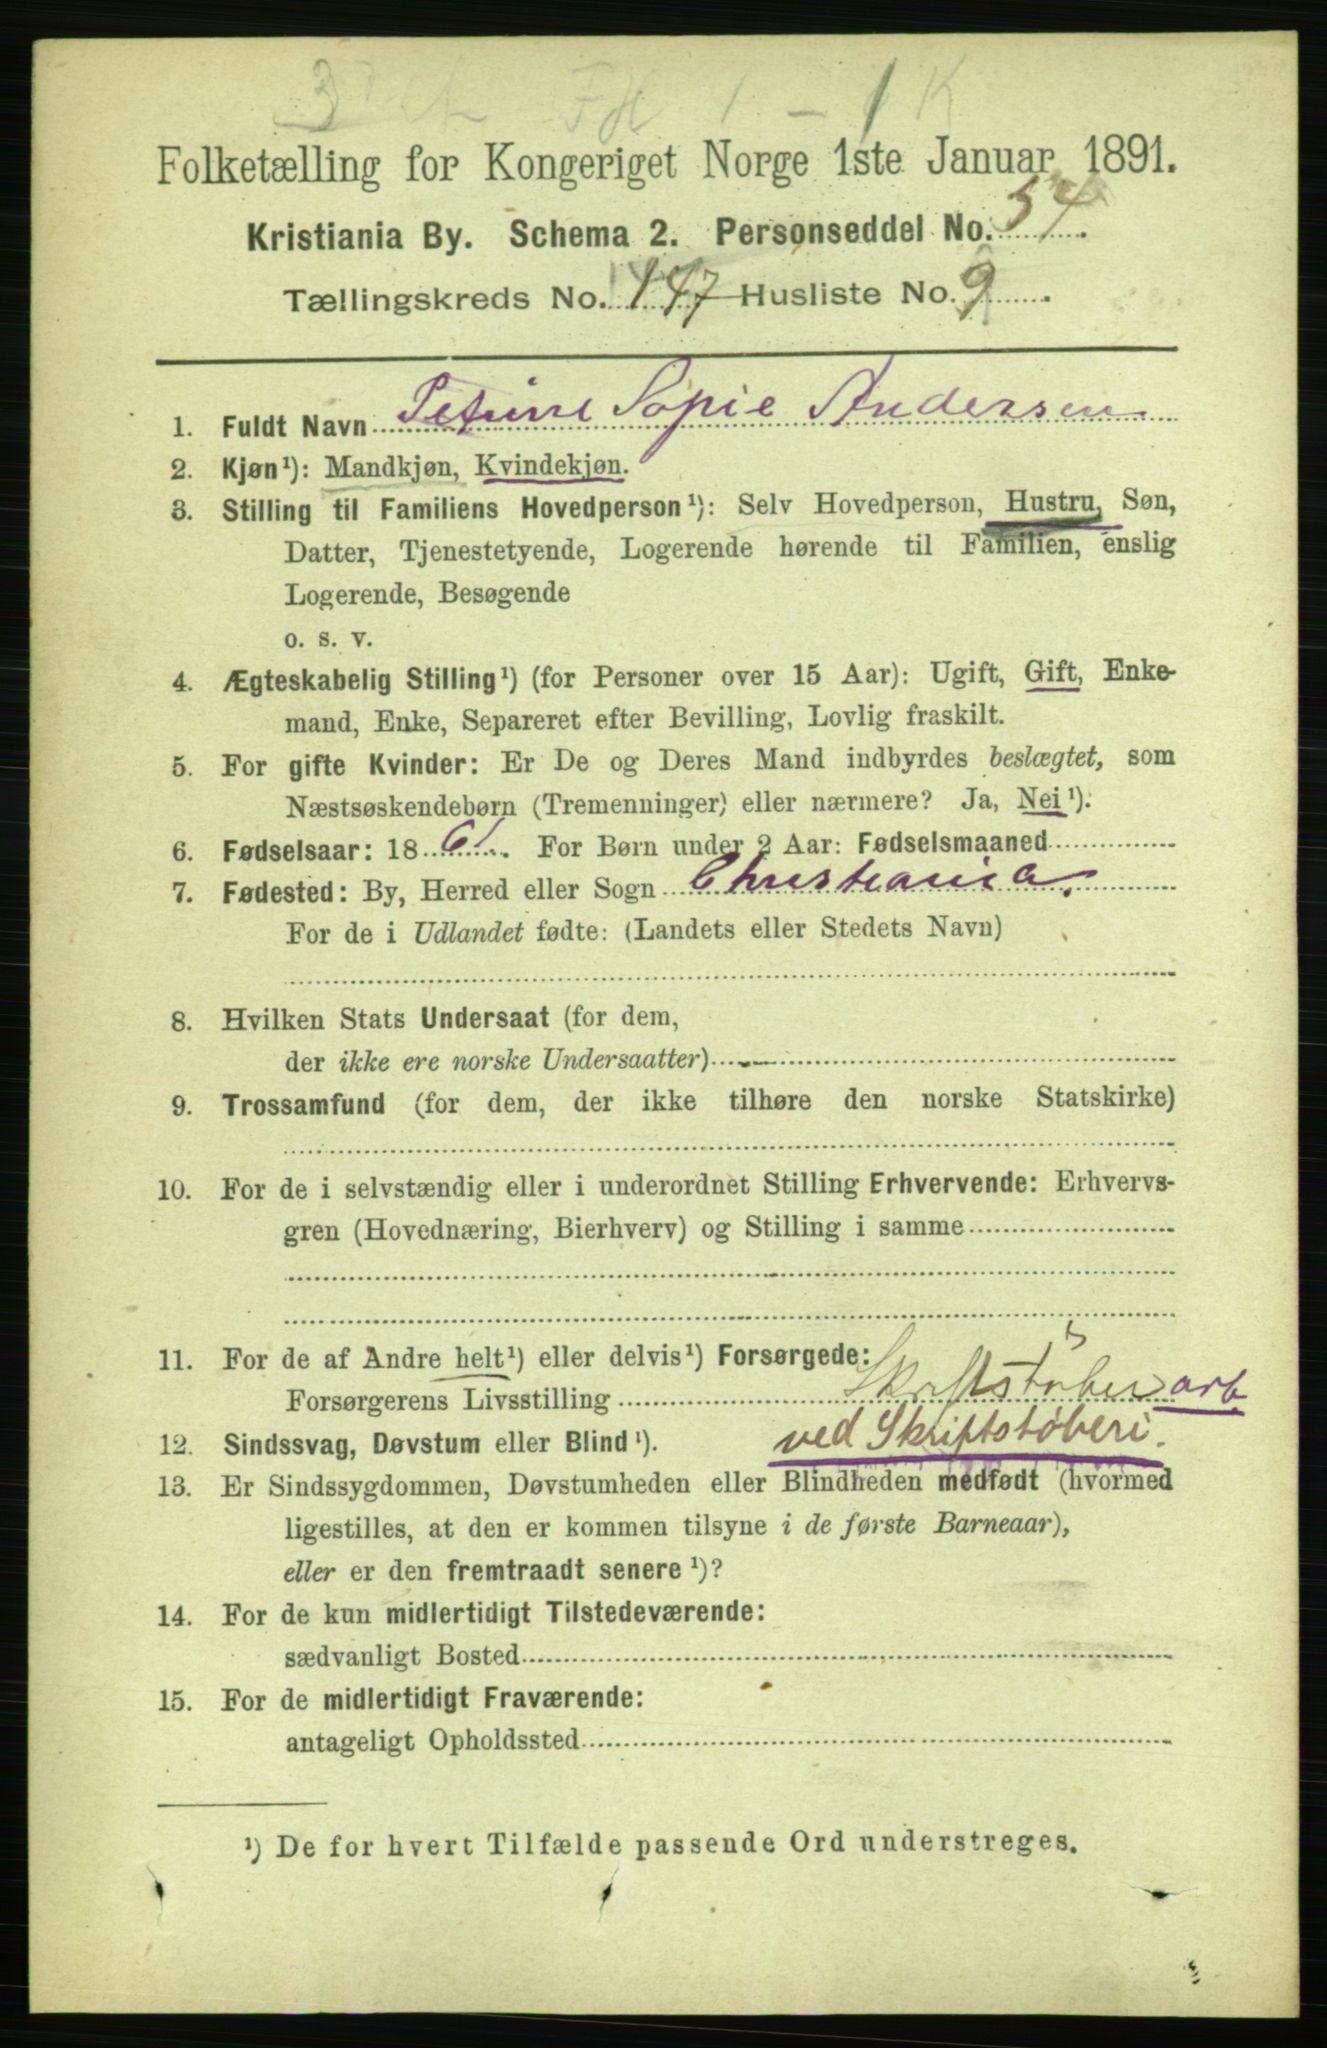 Folketælling for Kongeriget Norge 1ste Januar 1891.
Kristiania By. Schema 2. Personseddel No. 54.
Tællingskreds No. 147 Husliste No. 9.
1. Fuldt Navn Petrine Sopie Andersen
2. Kjøn¹): Mandkjøn, Kvindekjøn.
3. Stilling til Familiens Hovedperson¹): Selv Hovedperson, Hustru, Søn,
Datter, Tjenestetyende, Logerende hørende til Familien, enslig
Logerende, Besøgende
o. s. v.
4. Ægteskabelig Stilling¹) (for Personer over 15 Aar): Ugift, Gift, Enke-
mand, Enke, Separeret efter Bevilling, Lovlig fraskilt.
5. For gifte Kvinder: Er De og Deres Mand indbyrdes beslægtet, som
Næstsøskendebørn (Tremenninger) eller nærmere? Ja, Nei¹).
6. Fødselsaar: 1861. For Børn under 2 Aar: Fødselsmaaned
7. Fødested: By, Herred eller Sogn Christiania.
For de i Udlandet fødte: (Landets eller Stedets Navn)
8. Hvilken Stats Undersaat (for dem,
der ikke ere norske Undersaatter)
9. Trossamfund (for dem, der ikke tilhøre den norske Statskirke)
10. For de i selvstændig eller i underordnet Stilling Erhvervende: Erhvervs-
gren (Hovednæring, Bierhverv) og Stilling i samme
11. For de af Andre helt¹) eller delvis¹) Forsørgede:
Forsørgerens Livsstilling Skriftstøber arb
ved Skriftstøberi.
12. Sindssvag, Døvstum eller Blind¹).
13. Er Sindssygdommen, Døvstumheden eller Blindheden medfødt (hvormed
ligestilles, at den er kommen tilsyne i de første Barneaar),
eller er den fremtraadt senere¹)?
14. For de kun midlertidigt Tilstedeværende:
sædvanligt Bosted
15. For de midlertidigt Fraværende:
antageligt Opholdssted
¹) De for hvert Tilfælde passende Ord understreges.